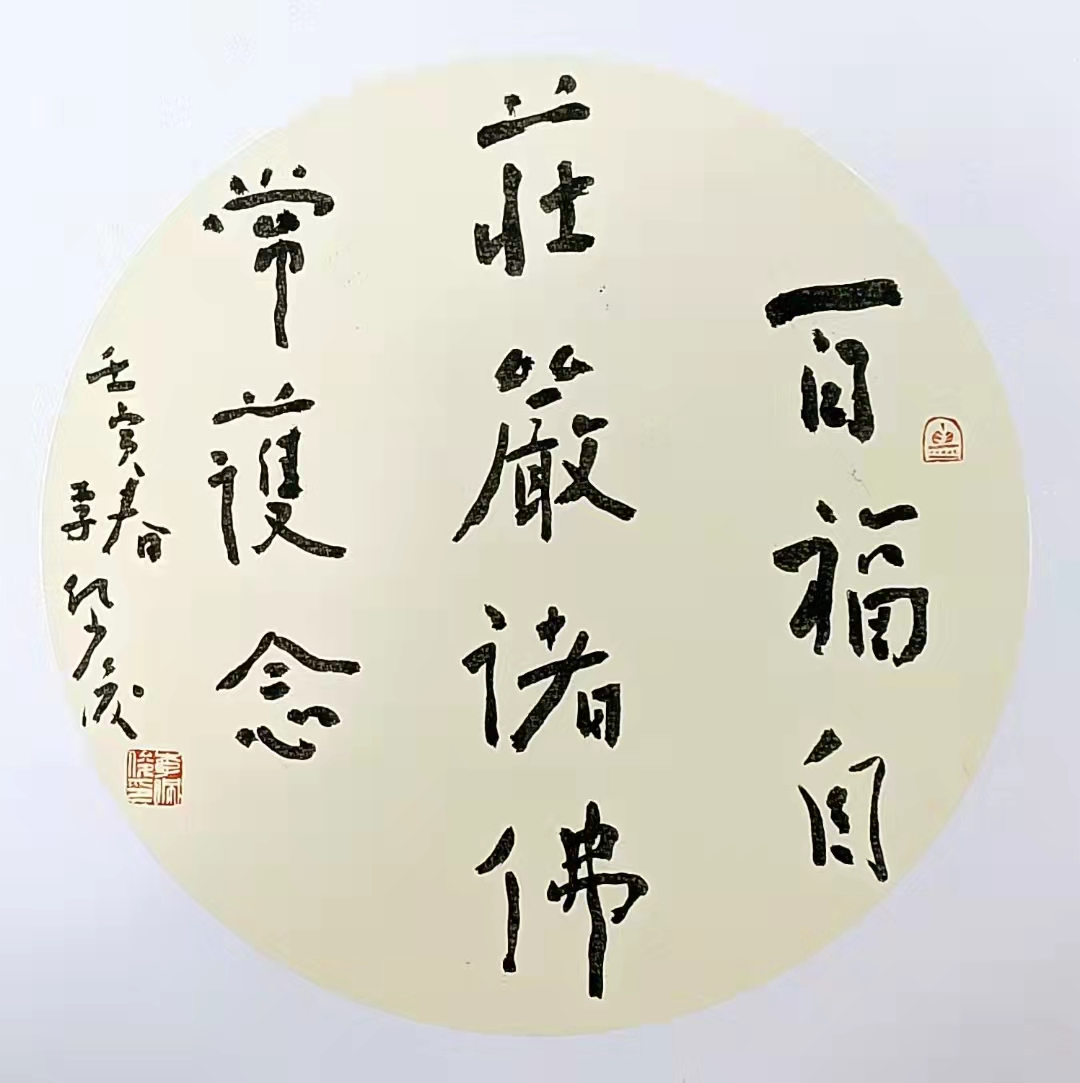 百福自
莊嚴諸佛
常護念
壬寅春